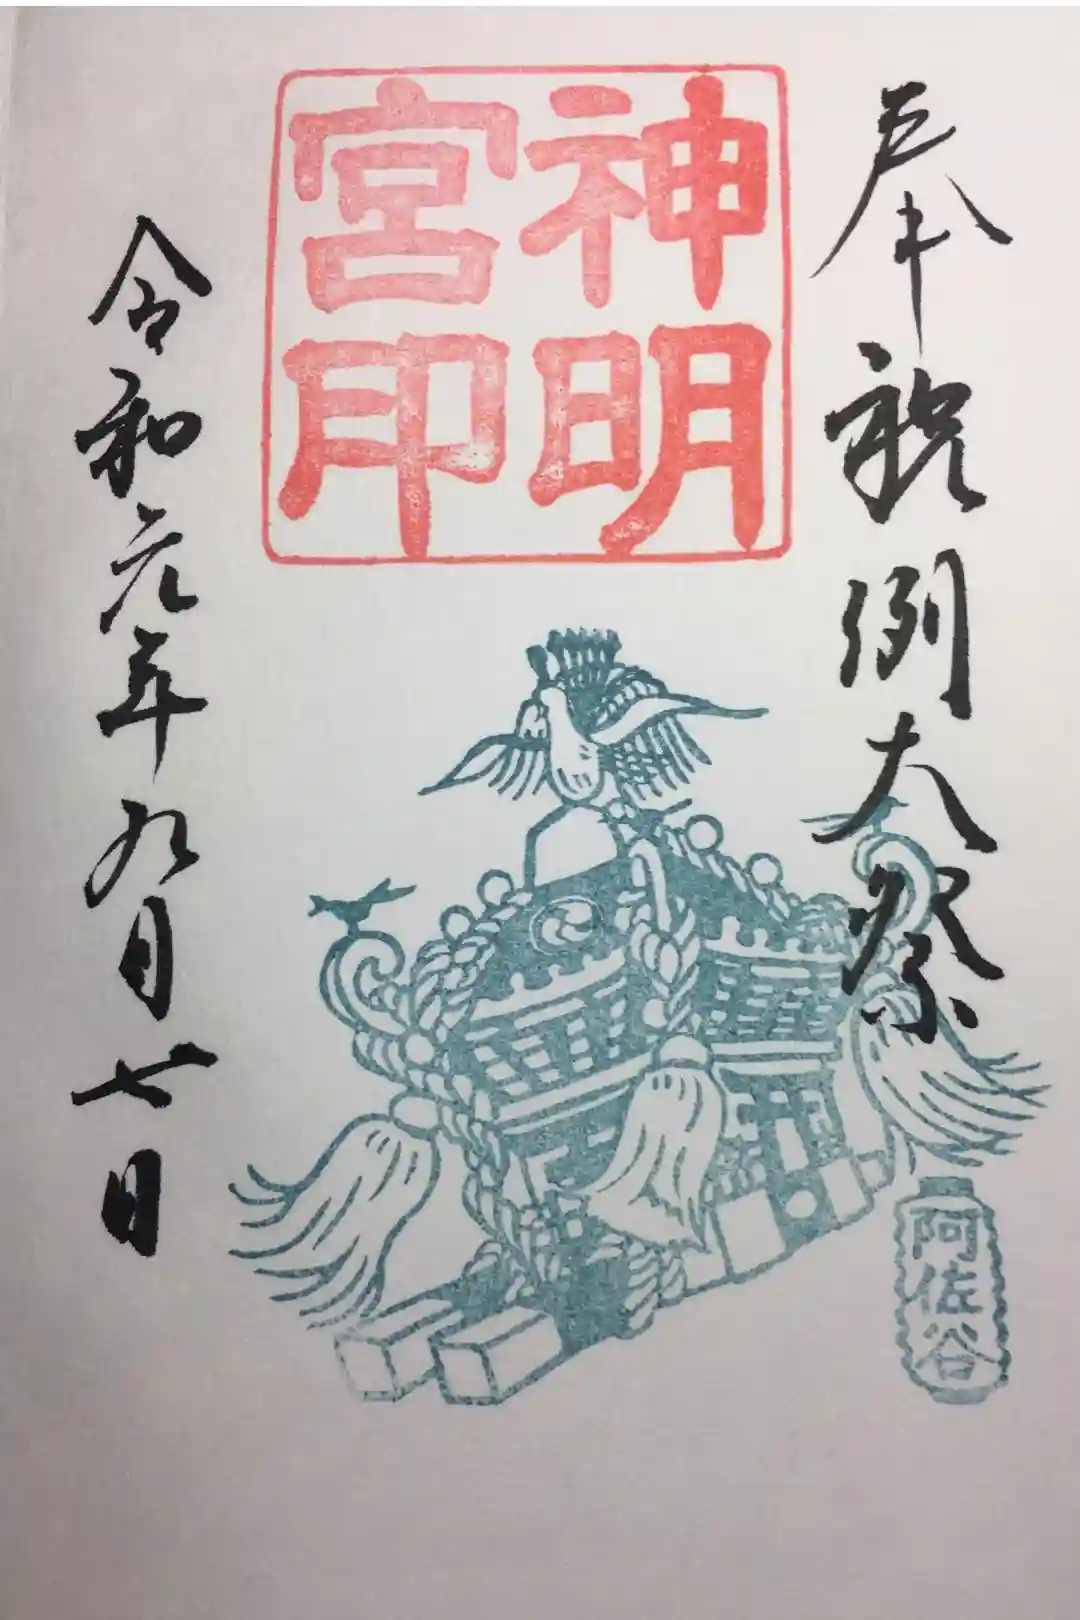 奉祝例大祭
神明
宮印
令和元年九月七日
阿依谷